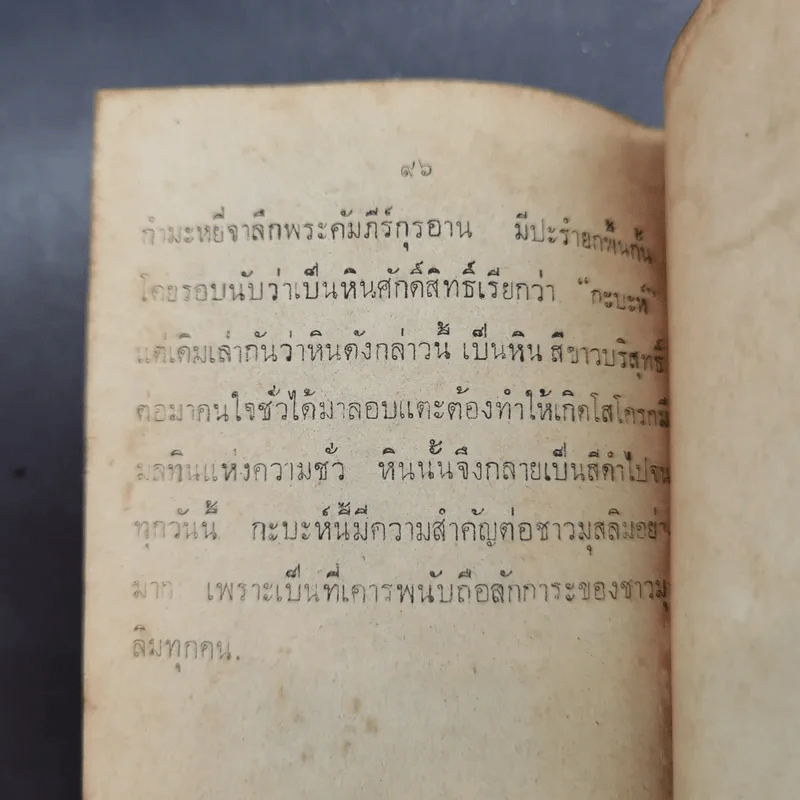 ๙๖
กำมะหยี่จาลึกพระคัมภีร์กุรอาน มีปะรำยกพื้นกั้น
โดยรอบนับว่าเป็นหินศักดิ์สิทธิ์เรียกว่า "กะบะห์"
แต่เดิมเล่ากันว่าหินดังกล่าวนี้ เป็นหิน สีขาวบริสุทธิ์
ต่อมาคนใจชั่วได้มาลอบแตะต้องทำให้เกิดโสโครกมี
มลทินแห่งความชั่ว หินนั้นจึงกลายเป็นสีดำไปจน
ทุกวันนี้ กะบะห์นี้มีความสำคัญต่อชาวมุสลิมอย่า
มาก เพราะเป็นที่เคารพนับถือสักการะของชาวมุ
ลิมทุกคน.